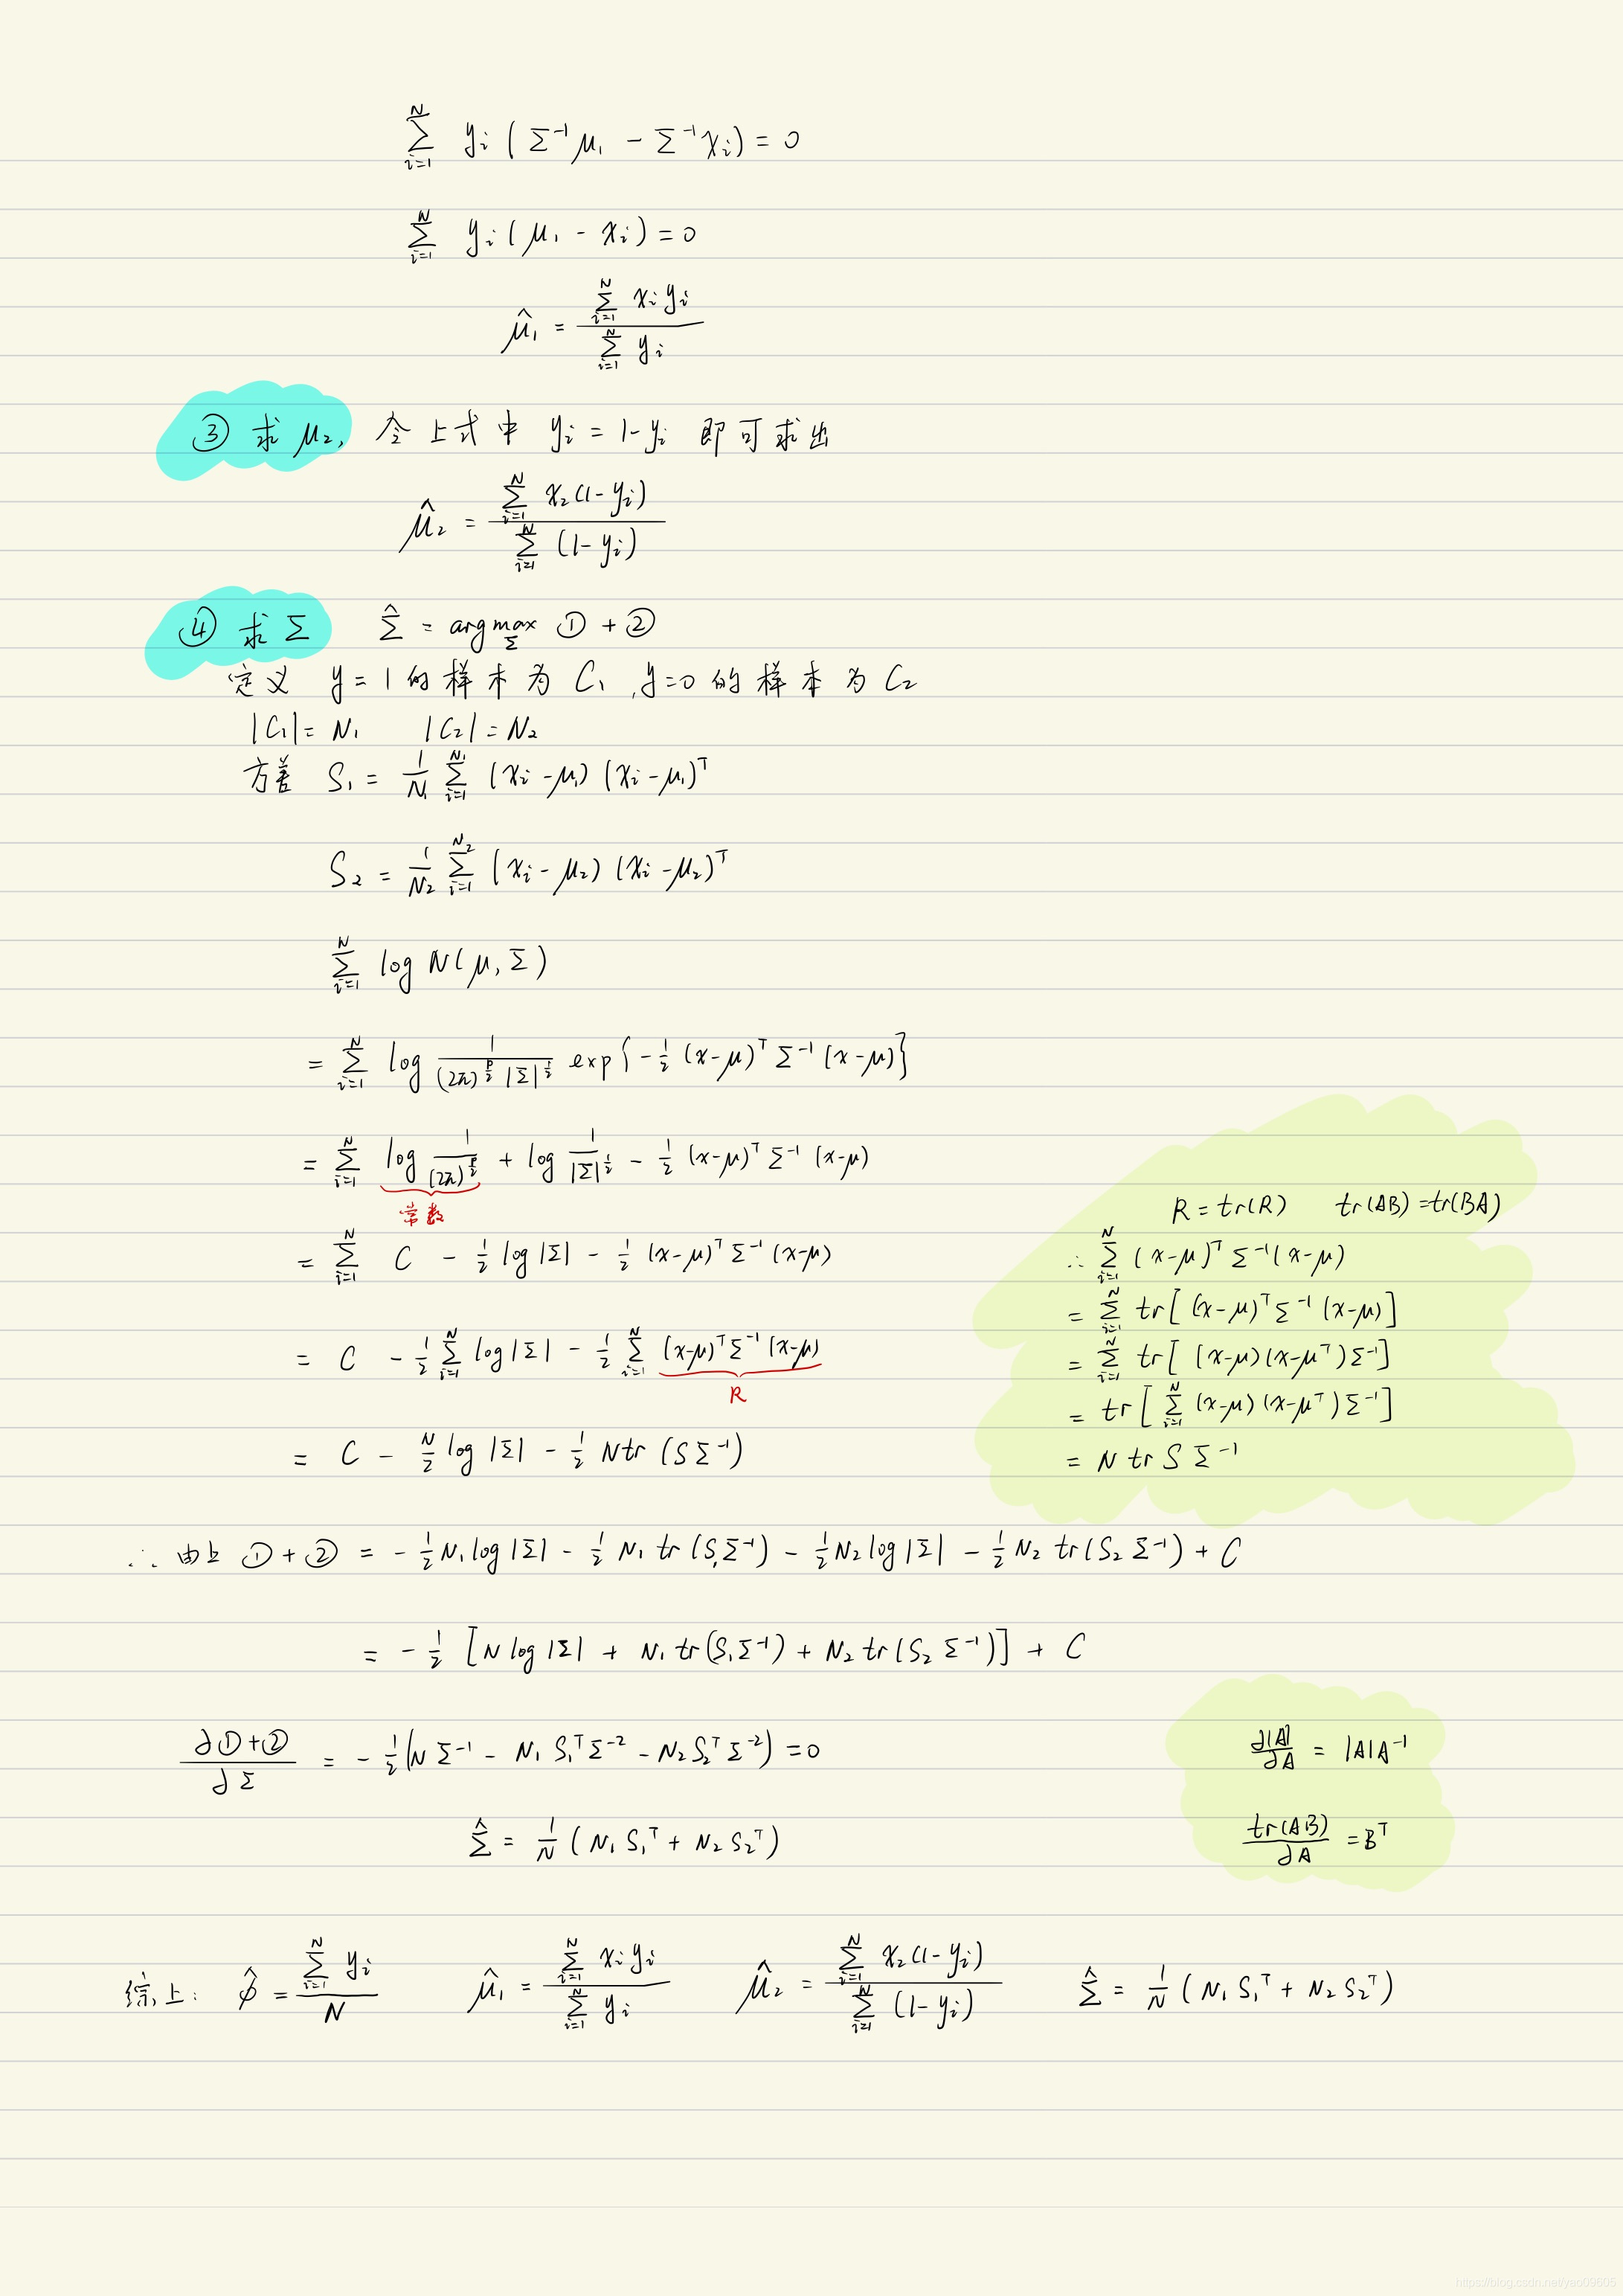 ∑_{i=1}^{N} y_i (Σ^{-1}μ_1 - Σ^{-1}x_i) = 0
∑_{i=1}^{N} y_i (μ_1 - x_i) = 0
\hat{μ}_1 = \frac{∑_{i=1}^{N} x_i y_i}{∑_{i=1}^{N} y_i}
③ 求 μ_2, 令上式中 y_i = 1-y_i 即可求出
\hat{μ}_2 = \frac{∑_{i=1}^{N} x_2(1-y_i)}{∑_{i=1}^{N} (1-y_i)}
④ 求 Σ \hat{Σ} = argmax_Σ ① + ②
定义 y=1的样本为 C_1, y=0的样本为 C_2
|C_1| = N_1 |C_2| = N_2
方差 S_1 = \frac{1}{N_1} ∑_{i=1}^{N_1} (x_i-μ_1) (x_i-μ_1)^T
S_2 = \frac{1}{N_2} ∑_{i=1}^{N_2} (x_i-μ_2) (x_i-μ_2)^T
∑_{i=1}^{N} log N(μ, Σ)
= ∑_{i=1}^{N} log \frac{1}{(2π)^{\frac{p}{2}} |Σ|^{\frac{1}{2}}} exp{-\frac{1}{2} (x-μ)^T Σ^{-1} (x-μ)}
= ∑_{i=1}^{N} log \frac{1}{(2π)^{\frac{p}{2}}} + log \frac{1}{|Σ|^{\frac{1}{2}}} - \frac{1}{2} (x-μ)^T Σ^{-1} (x-μ)
常数
= ∑_{i=1}^{N} C - \frac{1}{2} log|Σ| - \frac{1}{2} (x-μ)^T Σ^{-1} (x-μ)
= C - \frac{1}{2} ∑_{i=1}^{N} log|Σ| - \frac{1}{2} ∑_{i=1}^{N} (x-μ)^T Σ^{-1} (x-μ)
R
= C - \frac{N}{2} log|Σ| - \frac{1}{2} N tr (SΣ^{-1})
R = tr(R) tr(AB) = tr(BA)
∴ ∑_{i=1}^{N} (x-μ)^T Σ^{-1} (x-μ)
= ∑_{i=1}^{N} tr[(x-μ)^T Σ^{-1} (x-μ)]
= ∑_{i=1}^{N} tr[(x-μ)(x-μ^T)Σ^{-1}]
= tr[∑_{i=1}^{N} (x-μ)(x-μ^T)Σ^{-1}]
= N tr S Σ^{-1}
∴ 由上 ①+② = -\frac{1}{2}N_1 log|Σ| - \frac{1}{2} N_1 tr(S_1Σ^{-1}) - \frac{1}{2}N_2 log|Σ| - \frac{1}{2} N_2 tr(S_2 Σ^{-1}) + C
= -\frac{1}{2} [N log|Σ| + N_1 tr(S_1Σ^{-1}) + N_2 tr(S_2 Σ^{-1})] + C
\frac{∂①+②}{∂Σ} = -\frac{1}{2}(N Σ^{-1} - N_1 S_1^T Σ^{-2} - N_2 S_2^T Σ^{-2}) = 0
\hat{Σ} = \frac{1}{N} (N_1 S_1^T + N_2 S_2^T)
\frac{∂|A|}{∂A} = |A|A^{-1}
\frac{tr(AB)}{∂A} = B^T
综上: \hat{φ} = \frac{∑_{i=1}^{N} y_i}{N} \hat{μ}_1 = \frac{∑_{i=1}^{N} x_i y_i}{∑_{i=1}^{N} y_i} \hat{μ}_2 = \frac{∑_{i=1}^{N} x_2(1-y_i)}{∑_{i=1}^{N} (1-y_i)} \hat{Σ} = \frac{1}{N} (N_1 S_1^T + N_2 S_2^T)
https://blog.csdn.net/yao09605